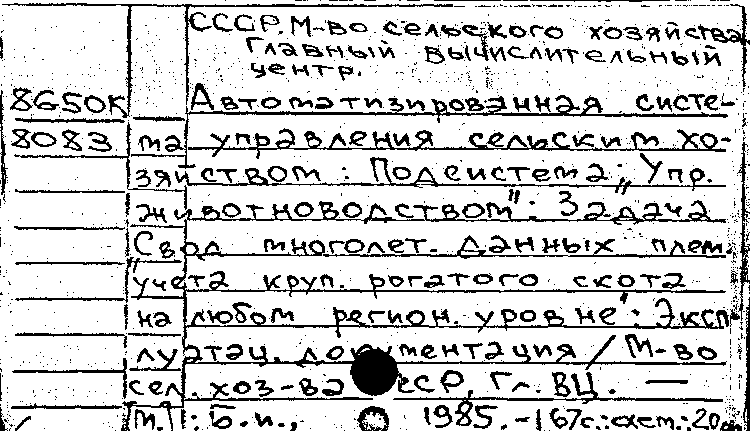 СССР. М-во сельского хозяйства.
Главный вычислительный
центр.
8G50K Автоматизированная систе-
8083 ма управления сельским хо-
зяйством: Подсистема „Упр.
животноводством": Задача
"Свод многолет. данных плем.
учета круп. рогатого скота
на любом регион. уровне": Эксп-
луатац. документация / М-во
сел. хоз-ва СССР, Гл. ВЦ. —
М.: Б.и., 1985. - 167с.: схем.; 20